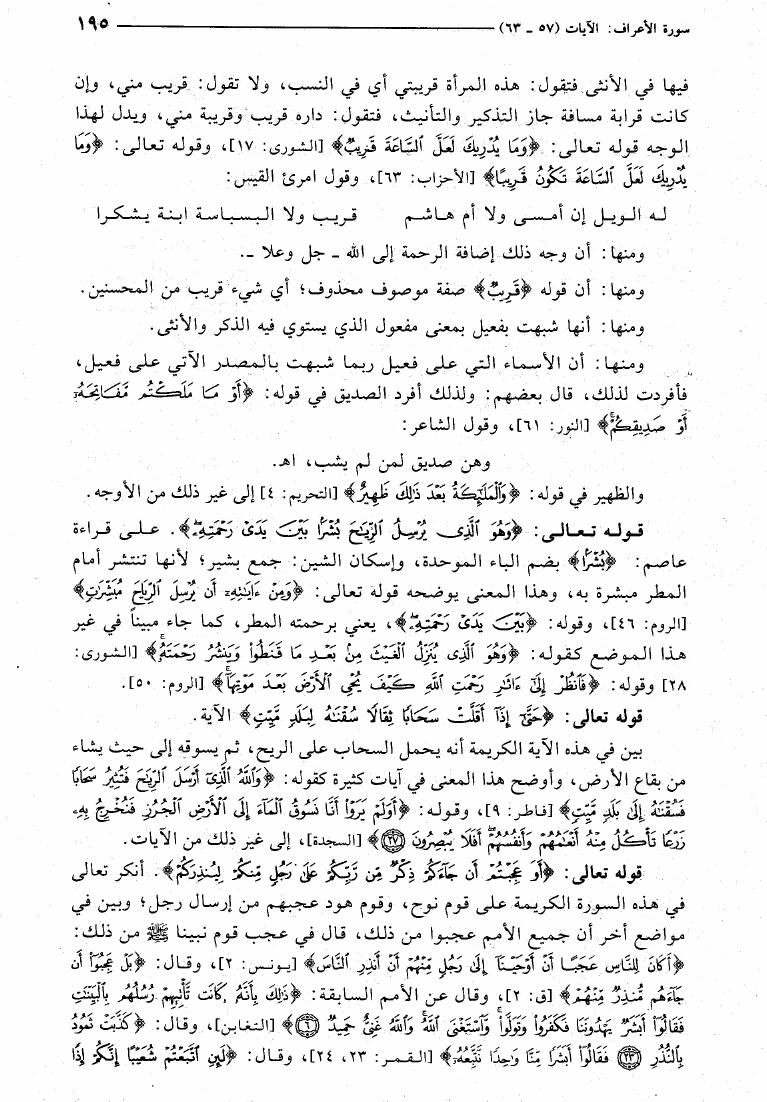 سورة الأعراف: الآيات (٥٧ ـ ٦٣) ١٩٥
فيها في الأنثى فتقول: هذه المرأة قريبتي أي في النسب، ولا تقول: قريب مني، وإن
كانت قرابة مسافة جاز التذكير والتأنيث، فتقول: داره قريب وقريبة مني، ويدل لهذا
الوجه قوله تعالى: ﴿وَمَا يُدْرِيكَ لَعَلَّ ٱلسَّاعَةَ قَرِيبٌ﴾ [الشورى: ١٧]، وقوله تعالى: ﴿وَمَا
يُدْرِيكَ لَعَلَّ ٱلسَّاعَةَ تَكُونُ قَرِيبًا﴾ [الأحزاب: ٦٣]، وقول امرئ القيس:
له الويل إن أمسى ولا أم هاشم قريب ولا البسباسة ابنة يشكرا
ومنها: أن وجه ذلك إضافة الرحمة إلى الله ـ جل وعلا ـ.
ومنها: أن قوله ﴿قَرِيبٌ﴾ صفة موصوف محذوف؛ أي شيء قريب من المحسنين.
ومنها: أنها شبهت بفعيل بمعنى مفعول الذي يستوي فيه الذكر والأنثى.
ومنها: أن الأسماء التي على فعيل ربما شبهت بالمصدر الآتي على فعيل،
فأفردت لذلك، قال بعضهم: ولذلك أفرد الصديق في قوله: ﴿أَوْ مَا مَلَكْتُم مَّفَاتِحَهُۥٓ
أَوْ صَدِيقِكُمْۚ﴾ [النور: ٦١]، وقول الشاعر:
وهن صديق لمن لم يشب، اهـ.
والظهير في قوله: ﴿وَٱلْمَلَٰٓئِكَةُ بَعْدَ ذَٰلِكَ ظَهِيرٌ﴾ [التحريم: ٤] إلى غير ذلك من الأوجه.
قوله تعالى: ﴿وَهُوَ ٱلَّذِى يُرْسِلُ ٱلرِّيَٰحَ بُشْرًۢا بَيْنَ يَدَىْ رَحْمَتِهِۦۖ﴾. على قراءة
عاصم: ﴿بُشْرًۢا﴾ بضم الباء الموحدة، وإسكان الشين: جمع بشير؛ لأنها تنتشر أمام
المطر مبشرة به، وهذا المعنى يوضحه قوله تعالى: ﴿وَمِنْ ءَايَٰتِهِۦٓ أَن يُرْسِلَ ٱلرِّيَاحَ مُبَشِّرَٰتٍ﴾
[الروم: ٤٦]، وقوله: ﴿بَيْنَ يَدَىْ رَحْمَتِهِۦۖ﴾، يعني برحمته المطر، كما جاء مبيناً في غير
هذا الموضع كقوله: ﴿وَهُوَ ٱلَّذِى يُنَزِّلُ ٱلْغَيْثَ مِنۢ بَعْدِ مَا قَنَطُوا۟ وَيَنشُرُ رَحْمَتَهُۥۚ﴾ [الشورى:
٢٨] وقوله: ﴿فَٱنظُرْ إِلَىٰٓ ءَاثَٰرِ رَحْمَتِ ٱللَّهِ كَيْفَ يُحْىِ ٱلْأَرْضَ بَعْدَ مَوْتِهَآۚ﴾ [الروم: ٥٠].
قوله تعالى: ﴿حَتَّىٰٓ إِذَآ أَقَلَّتْ سَحَابًا ثِقَالًا سُقْنَٰهُ لِبَلَدٍ مَّيِّتٍ﴾ الآية.
بين في هذه الآية الكريمة أنه يحمل السحاب على الريح، ثم يسوقه إلى حيث يشاء
من بقاع الأرض، وأوضح هذا المعنى في آيات كثيرة كقوله: ﴿وَٱللَّهُ ٱلَّذِىٓ أَرْسَلَ ٱلرِّيَٰحَ فَتُثِيرُ سَحَابًا
فَسُقْنَٰهُ إِلَىٰ بَلَدٍ مَّيِّتٍ﴾ [فاطر: ٩]، وقوله: ﴿أَوَلَمْ يَرَوْا۟ أَنَّا نَسُوقُ ٱلْمَآءَ إِلَى ٱلْأَرْضِ ٱلْجُرُزِ فَنُخْرِجُ بِهِۦ
زَرْعًا تَأْكُلُ مِنْهُ أَنْعَٰمُهُمْ وَأَنفُسُهُمْۖ أَفَلَا يُبْصِرُونَ ﴿٢٧﴾﴾ [السجدة]، إلى غير ذلك من الآيات.
قوله تعالى: ﴿أَوَ عَجِبْتُمْ أَن جَآءَكُمْ ذِكْرٌ مِّن رَّبِّكُمْ عَلَىٰ رَجُلٍ مِّنكُمْ لِيُنذِرَكُمْ﴾. أنكر تعالى
في هذه السورة الكريمة على قوم نوح، وقوم هود عجبهم من إرسال رجل؛ وبين في
مواضع أخر أن جميع الأمم عجبوا من ذلك، قال في عجب قوم نبينا ﷺ من ذلك:
﴿أَكَانَ لِلنَّاسِ عَجَبًا أَنْ أَوْحَيْنَآ إِلَىٰ رَجُلٍ مِّنْهُمْ أَنْ أَنذِرِ ٱلنَّاسَ﴾ [يونس: ٢]، وقال: ﴿بَلْ عَجِبُوٓا۟ أَن
جَآءَهُم مُّنذِرٌ مِّنْهُمْ﴾ [ق: ٢]، وقال عن الأمم السابقة: ﴿ذَٰلِكَ بِأَنَّهُۥ كَانَت تَّأْتِيهِمْ رُسُلُهُم بِٱلْبَيِّنَٰتِ
فَقَالُوٓا۟ أَبَشَرٌ يَهْدُونَنَا فَكَفَرُوا۟ وَتَوَلَّوا۟ۚ وَّٱسْتَغْنَى ٱللَّهُۚ وَٱللَّهُ غَنِىٌّ حَمِيدٌ ﴿٦﴾﴾ [التغابن]، وقال: ﴿كَذَّبَتْ ثَمُودُ
بِٱلنُّذُرِ ﴿٢٣﴾ فَقَالُوٓا۟ أَبَشَرًا مِّنَّا وَٰحِدًا نَّتَّبِعُهُۥٓ﴾ [القمر: ٢٣، ٢٤]، وقال: ﴿لَئِنِ ٱتَّبَعْتُمْ شُعَيْبًا إِنَّكُمْ إِذًا